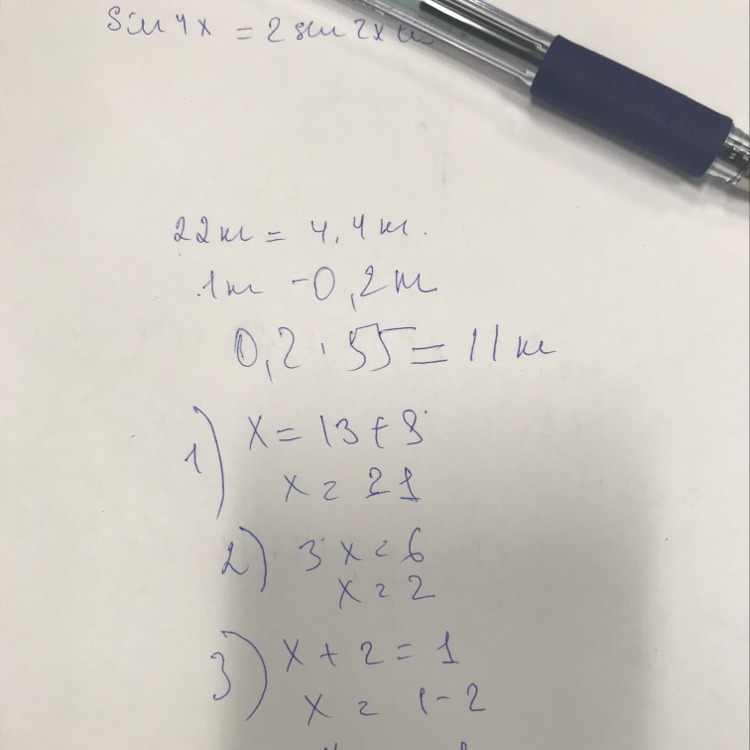 sin 4x = 2 sin 2x
22м = 4,4м.
1м - 0,2м
0,2 · 55 = 11м
1) x = 13 + 8
x = 21
2) 3x = 6
x = 2
3) x + 2 = 1
x = 1 - 2